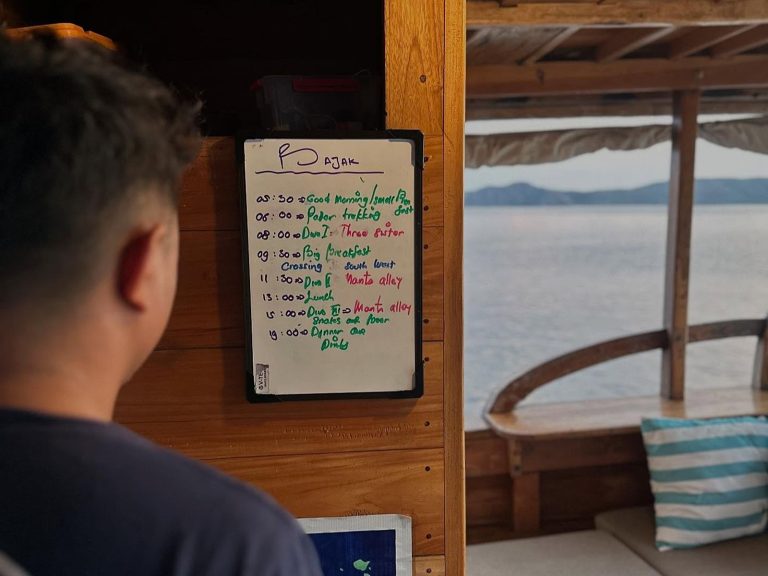 BAJAK
05:30 ⇒ Good Morning / small Break
fast
06:00 ⇒ Padar trekking
08:00 ⇒ Dive I: Three sister
09:30 ⇒ Big Breakfast
Crossing South West
11:30 ⇒ Dive II Manta alley
13:00 ⇒ Lunch
15:00 ⇒ Dive III ⇒ Manta alley
Snakes and Beer
19:00 ⇒ Dynner and
Drinks